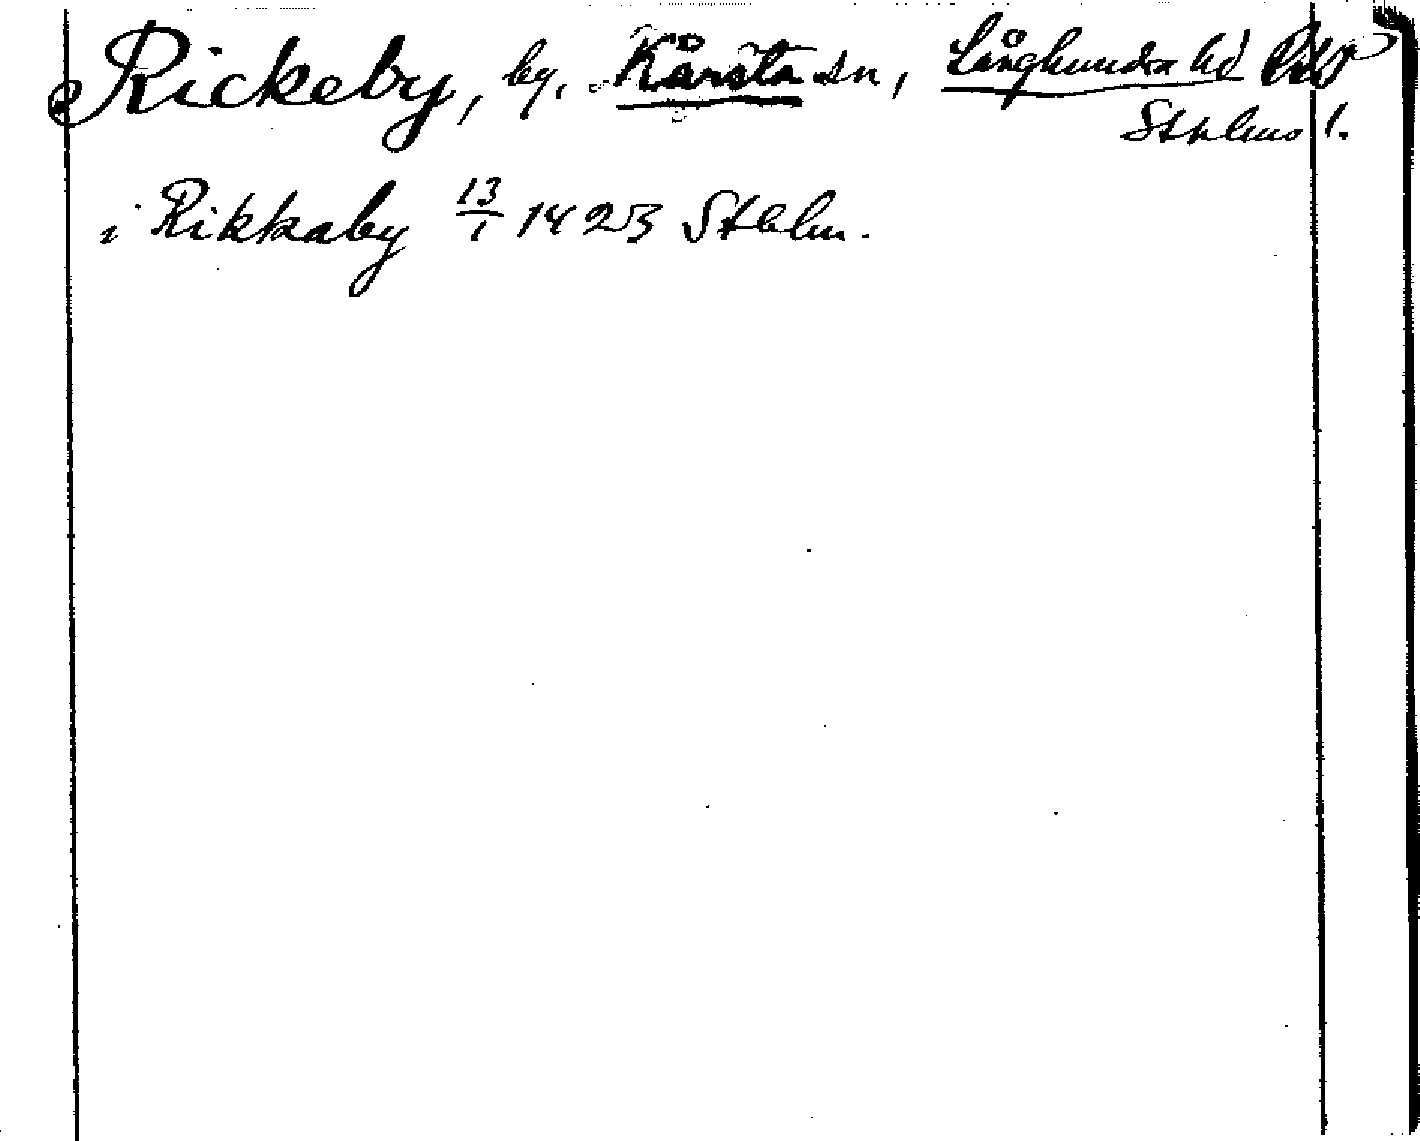 Rickeby, by, Kårsta sn, Långhundra hd
Sthlms l.
i Rikkaby 13/1 1423 Sthlm.